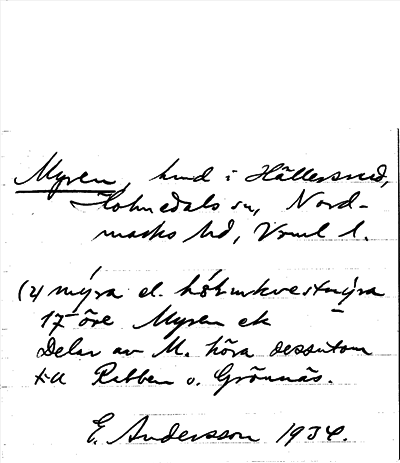 Myren, hmd i Hällersrud,
Holmedals sn, Nord-
marks hd, Vrml l.
(2) mýra el. hólmkvestmýra
17 öre Myren ek
Delar av M. höra dessutom
till Rabben o. Grönnäs.
E. Andersson 1934.